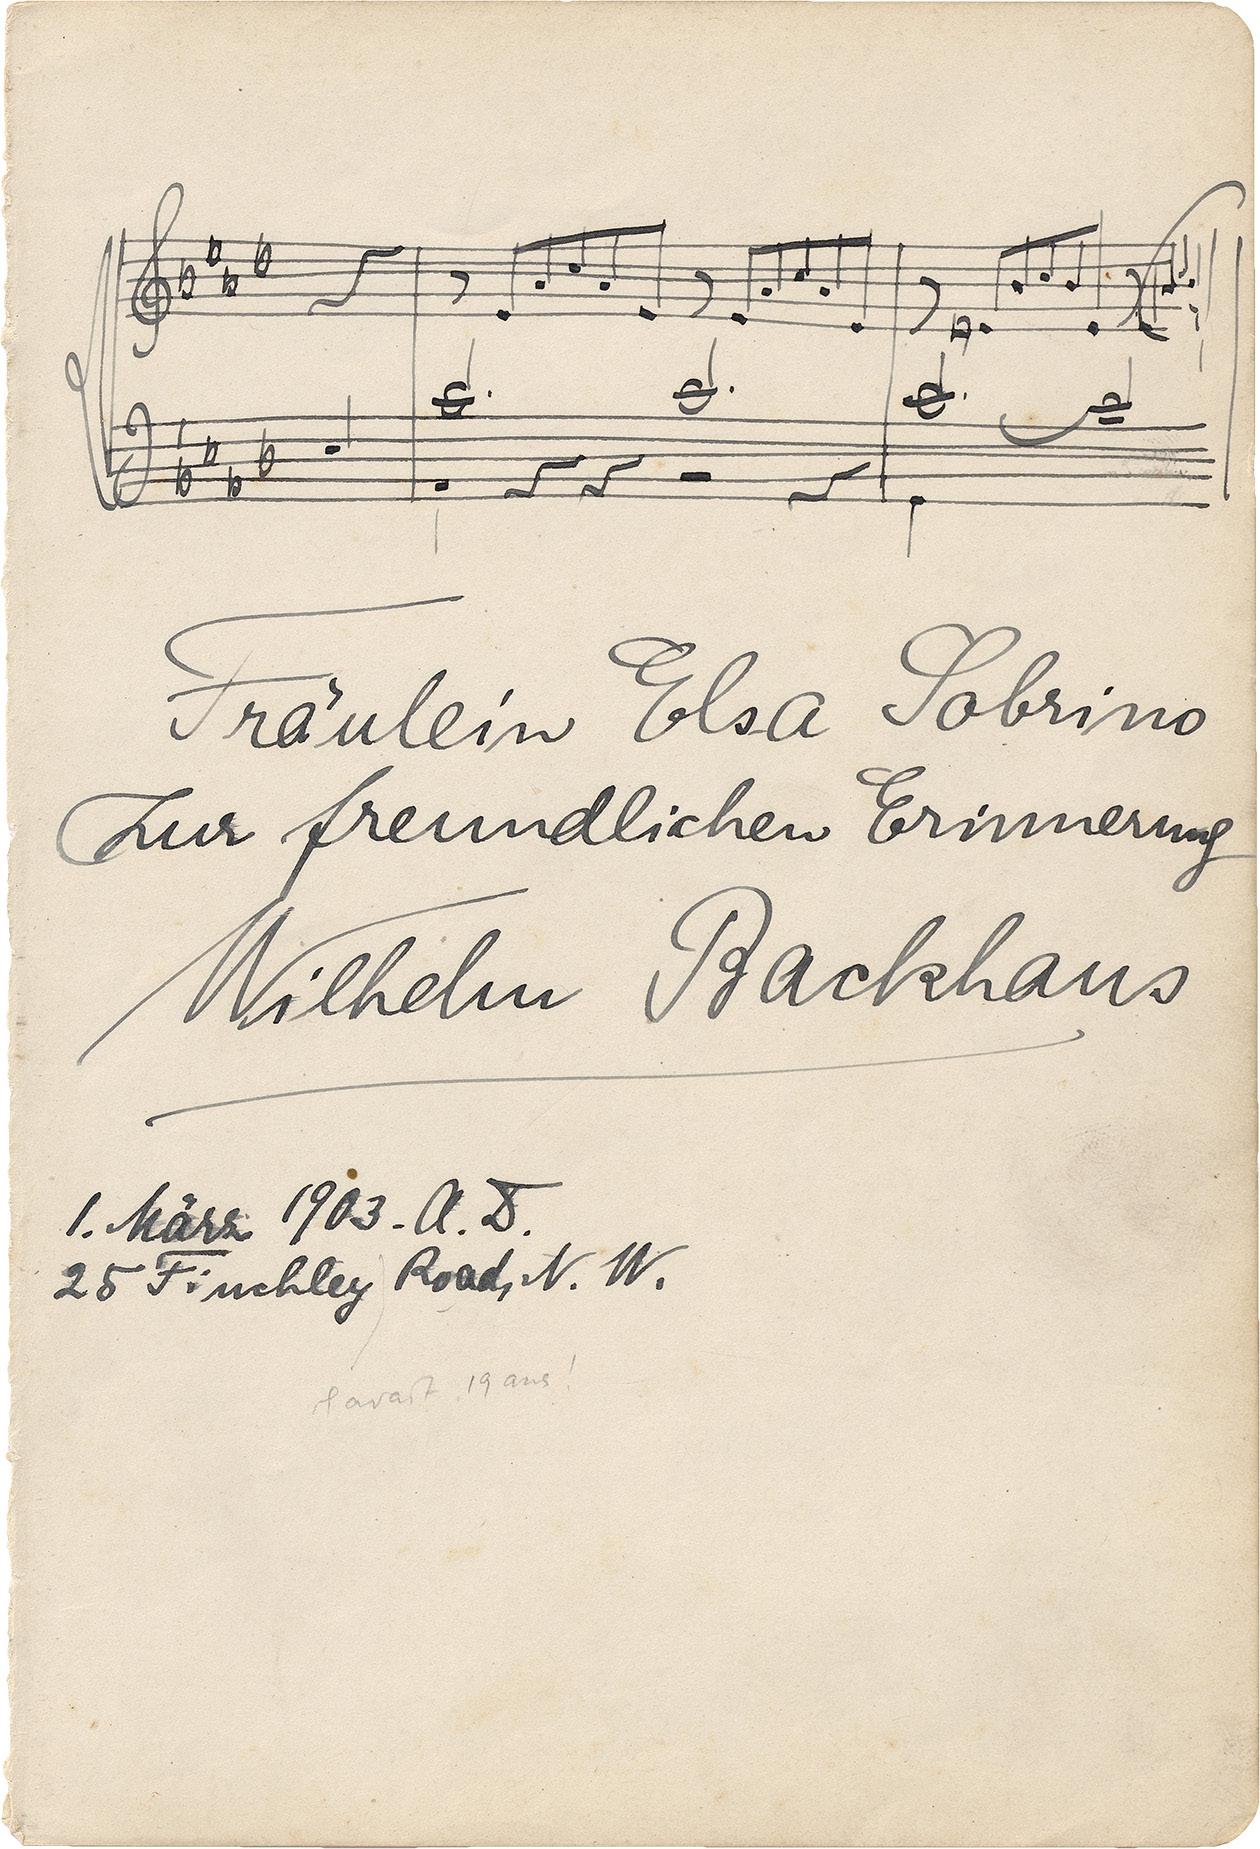 Fräulein Elsa Sobrino
zur freundlichen Erinnerung
Wilhelm Backhaus
1. März 1903. A. D.
25 Finchley Road, N. W.
avait 19 ans!